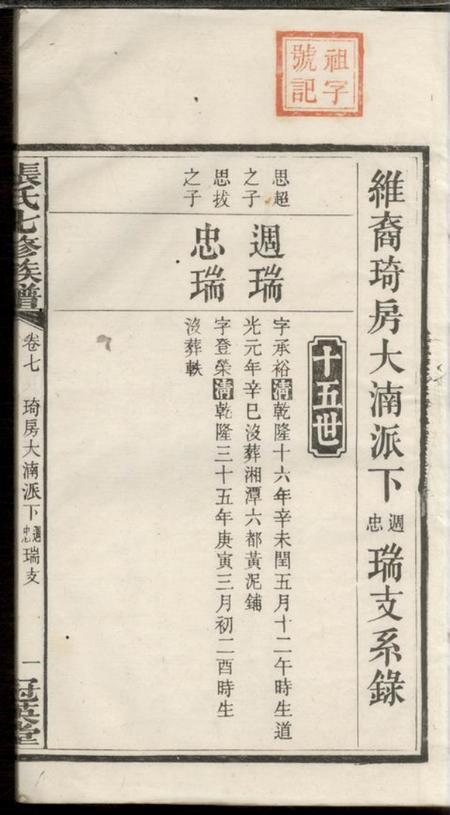 祖字
號記
維裔琦房大湳派下週忠瑞支系錄
十五世
思超之子
週瑞
字承裕清乾隆十六年辛未閏五月十二午時生道
光元年辛巳沒葬湘潭六都黃泥鋪
思拔之子
忠瑞
字登榮清乾隆三十五年庚寅三月初二酉時生
沒葬軼
張氏七修族譜
卷七
琦房大湳派下週忠瑞支
一
冠英堂